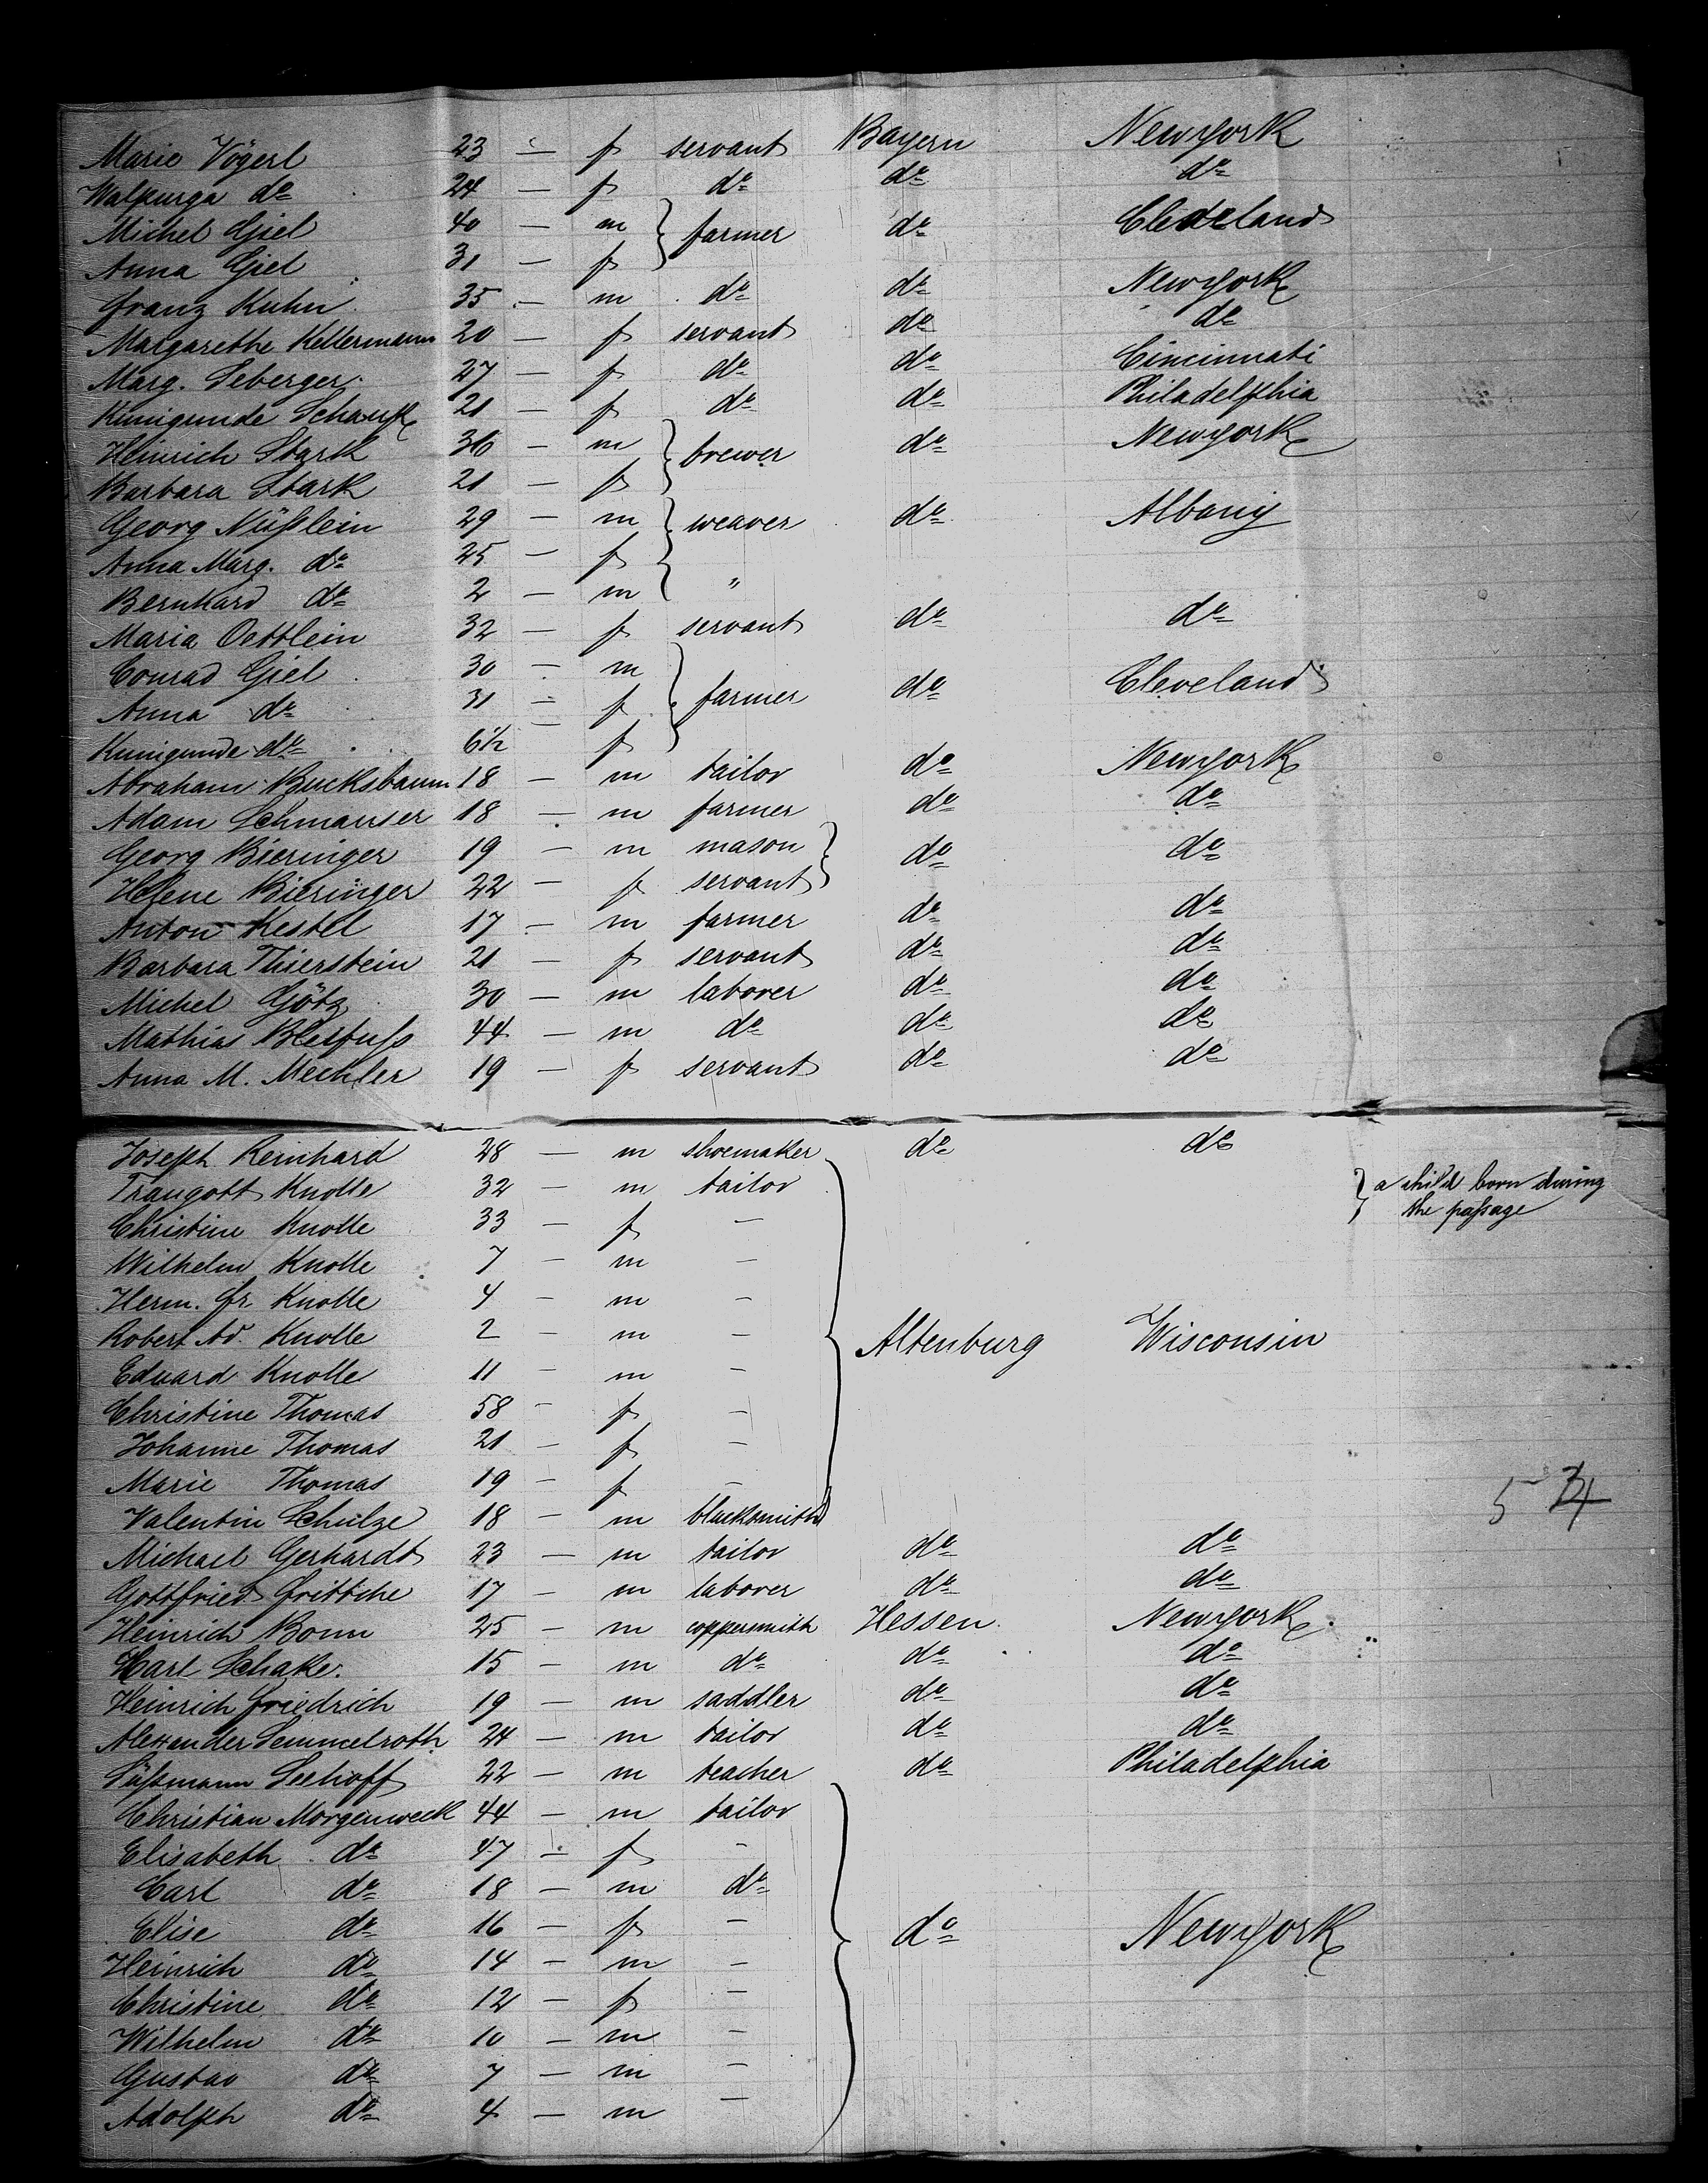 Marie Vögerl 23 — f servant Bayern Newyork
Walpurga do 24 — f do do do
Michel Giel 40 — m } farmer do Cleveland
Anna Giel 31 — f
Franz Kuhn 35 — m do do Newyork
Margarethe Kellermann 20 — f servant do do
Marg. Seberger 27 — f do do Cincinnati
Kunigunde 21 — f do do Philadelphia
Heinrich Stark 36 — m } brewer do Newyork
Barbara Stark 21 — f
Georg Nüßlein 29 — m } weaver do Albany
Anna Marg. do 25 — f
Bernhard do 2 — m "
Maria Oettlein 32 — f servant do do
Conrad Giel 30 — m
Anna do 31 — f } farmer do Cleveland
Kunigunde do 6½ f
Abraham Bucksbaum 18 — m tailor do Newyork
Adam Schmauser 18 — m farmer do do
Georg Bieringer 19 — m mason } do do
Helene Bieringer 22 — f servant
Anton Kestel 17 — m farmer do do
Barbara Thierstein 21 — f servant do do
Michel Götz 30 — m laborer do do
Mathias 44 — m do do do
Anna M. Mechler 19 — f servant do do
Joseph Reinhard 28 — m shoemaker do do
Traugott Knolle 32 — m tailor } a child born during
Christine Knolle 33 — f — the passage
Wilhelm Knolle 7 — m —
Herm. Fr. Knolle 4 — m —
Robert Ad. Knolle 2 — m — } Altenburg Wisconsin
Eduard Knolle 11 — m —
Christine Thomas 58 — f —
Johanne Thomas 21 — f —
Marie Thomas 19 — f —
Valentin Schulze 18 — m blacksmith
Michael Gerhardt 23 — m tailor do do
Gottfried Frittche 17 — m laborer do do
Heinrich Bonn 25 — m coppersmith Hessen Newyork
Karl Schake. 15 — m do do do
Heinrich Friedrich 19 — m saddler do do
Alexander Semmelroth 24 — m tailor do do
Süßmann Seehoff 22 — m teacher do Philadelphia
Christian Morgenweck 44 — m tailor
Elisabeth do 47 — f —
Carl do 18 — m do
Elise do 16 — f — } do Newyork
Heinrich do 14 — m —
Christine do 12 — f —
Wilhelm do 10 — m —
Gustav do 7 — m —
Adolph do 4 — m —